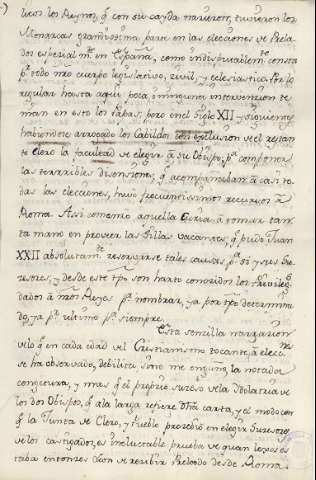 licos los Reynos, q.e con su cayda nacieron, tuvieron los
Monarcas grandissima parte en las elecciones de Prela-
dos especialm.te en España, como indisputablem.te consta
p.r todo nro cuerpo legislativo, civil, y eclesiastico. Por lo
regular hasta aqui poca, ó ninguna intervencion te-
nian en esto los Papas; pero en el Siglo XII y siguientes
habiendose arrogado los Cabildos con exclusion de el restan-
te Clero la facultad de elegir á su Obispo, p.a componer
las terribles disensiones, q.e acompañaban á casi to-
das las elecciones, hubo frecuentissimos recursos á
Roma. Assi comenzó aquella Curia á tomar tan-
ta mano en proveer las Sillas vacantes, q.e pudo Juan
XXII absolutam.te reservarse tales causas, p.a sí y sus Suc-
cesores, y desde este tpo son harto conocidos los Privilegios
dados á nros Reyes p.a nombrar, ya por tpo determina-
do, ya p.r ultimo p.a siempre.
Esta sencilla narracion
de lo q.e en cada edad del Cristianismo tocante á elecc.nes
se ha observado, debilita, sino me engaño, la notada
congetura, y mas q.e el proprio suceso de la Idolatria de
los dos Obispos, q.e a la larga refiere dha carta, y el modo con
q.e la Junta de Clero, y Pueblo procedió en elegir Sucesores
de los castigados, es ineluctable prueba de quan lejos es-
taba entonces Leon de recibir Prelado desde Roma.